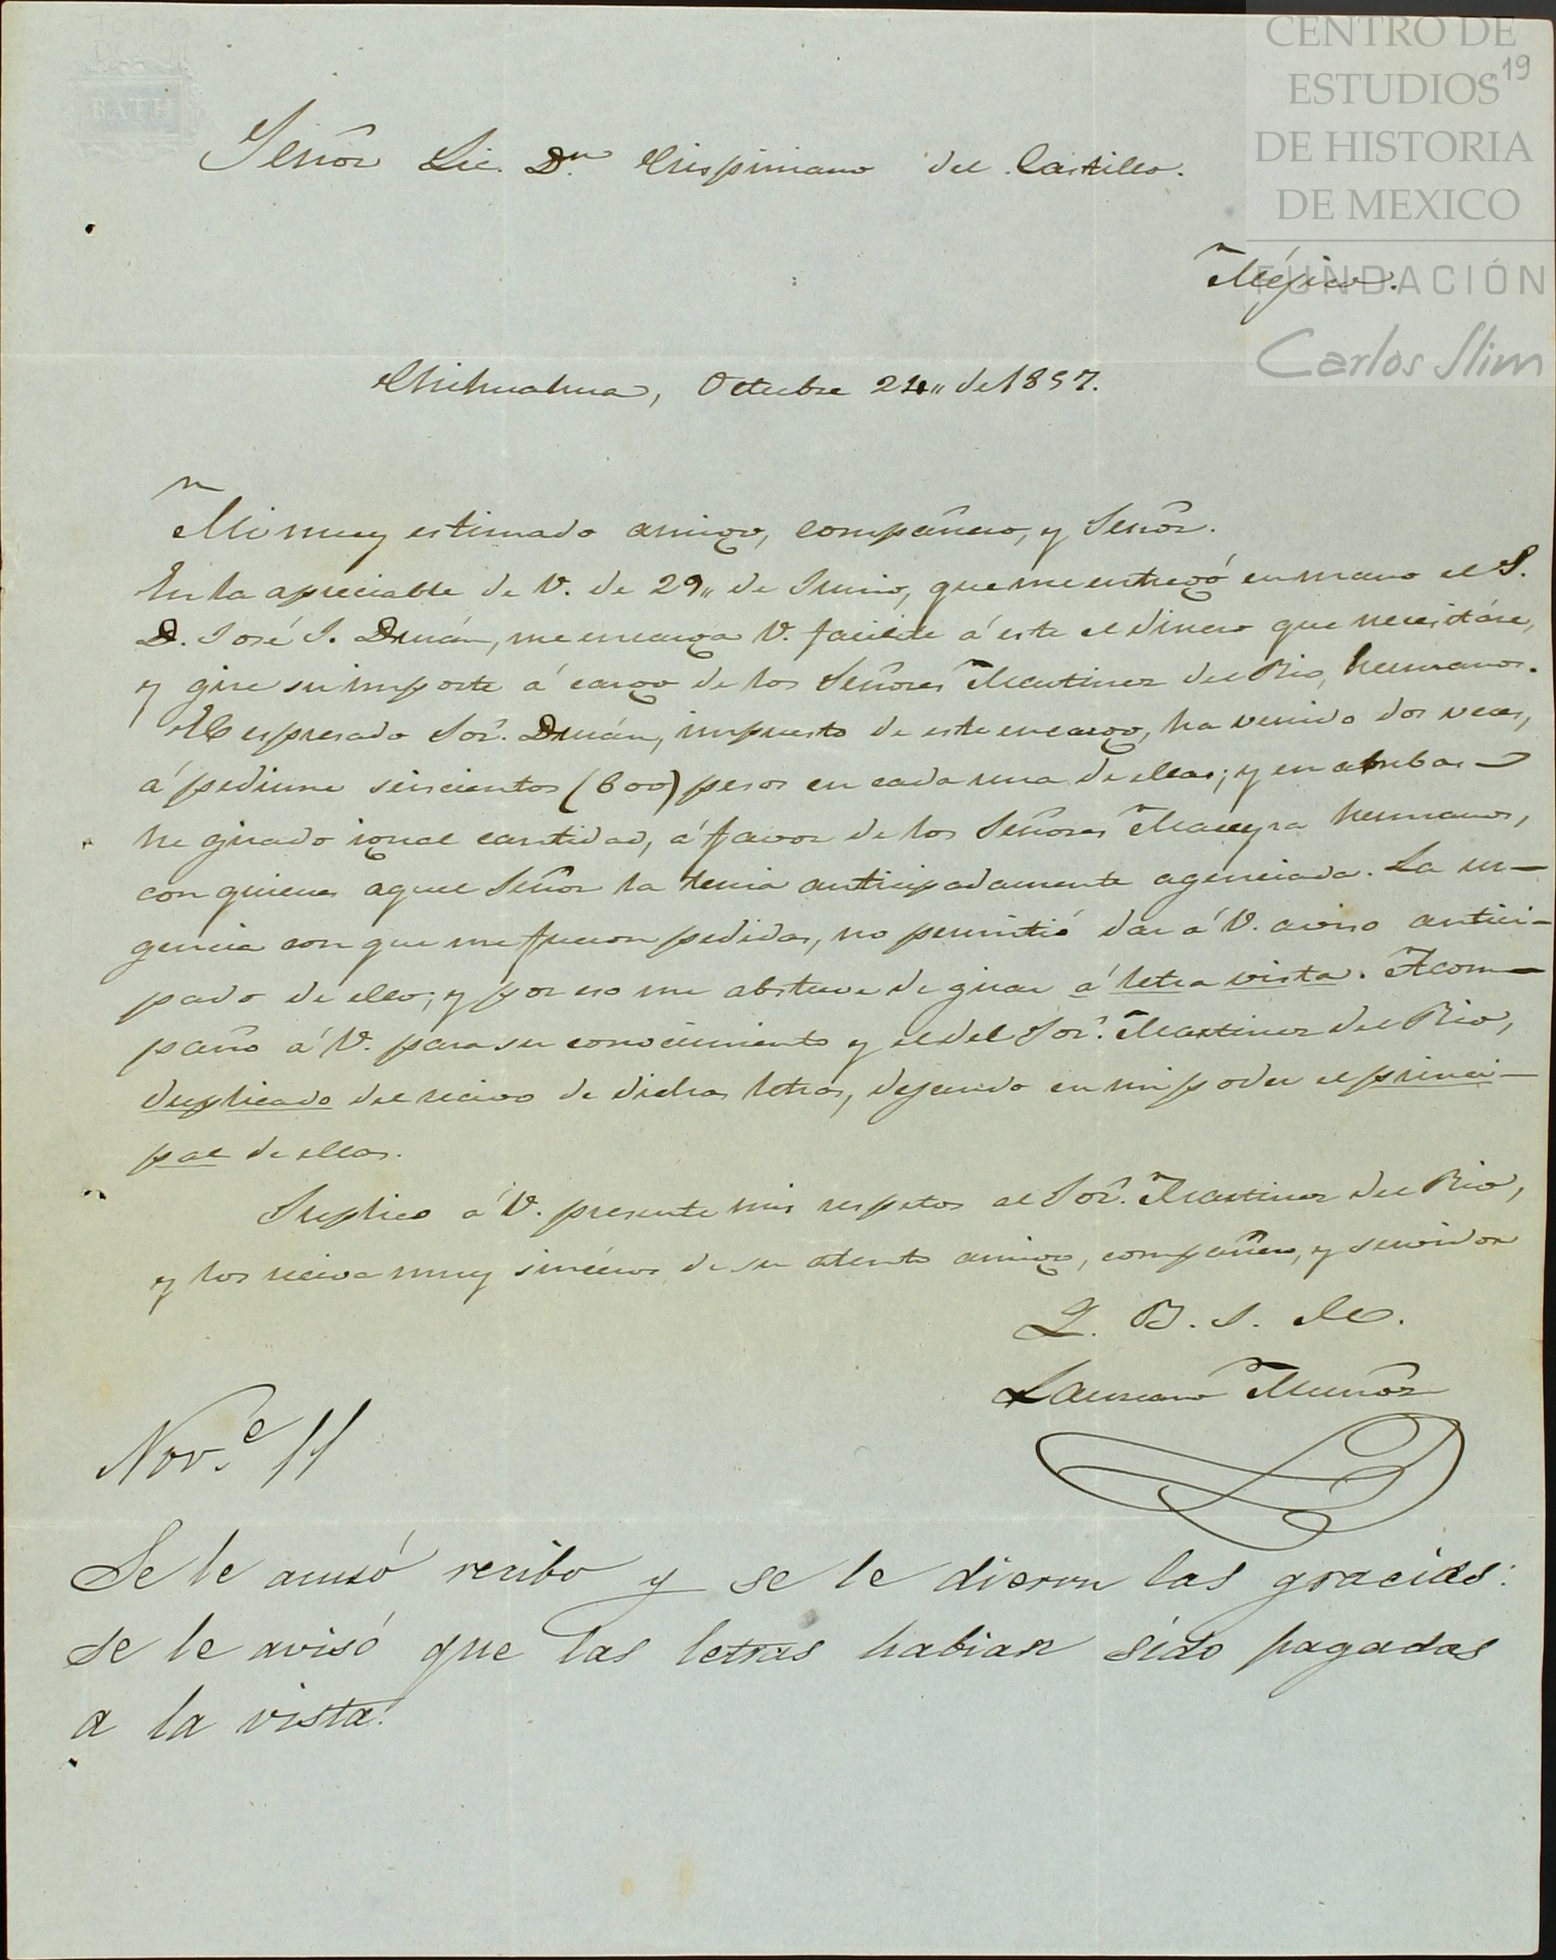 CENTRO DE
ESTUDIOS
19
DE HISTORIA
DE MEXICO
FUNDACIÓN
Carlos Slim
BATH
Señor Lic. Dn. Crispiniano del Castillo.
Méjico.
Chihuahua, Octubre 24,, de 1857.
Mi muy estimado amigo, compañero, y Señor.
En la apreciable de V. de 29,, de Junio, que me entregó en mano el S.
D. José J. Durán, me encarga V. facilite á este el dinero que necesitáre,
y gire su importe á cargo de los Señores Martinez del Rio, hermanos.
El espresado Sor. Durán, impuesto de este encargo, ha venido dos veces,
á pedirme seiscientos (600) pesos en cada una de ellas; y en ambas
he girado igual cantidad, á favor de los Señores Maceyra hermanos,
con quienes aquel Señor la tenia anticipadamente agenciada. La ur-
gencia con que me fueron pedidas, no permitió dar á V. aviso antici-
pado de ello; y por eso me abstuve de girar á letra vista. Acom-
paño á V. para su conocimiento y el del Sor. Martinez del Rio,
duplicado del recivo de dichas letras, dejando en mi poder el princi-
pal de ellas.
Suplico á V. presente mis respetos al Sor. Martinez del Rio,
y los reciva muy sincéros de su atento amigo, compañero, y servidor
Q. B. S. M.
Laureano Muñoz
Nov.e 11
Se le acusó recibo y se le dieron las gracias:
se le avisó que las letras habian sido pagadas
a la vista.